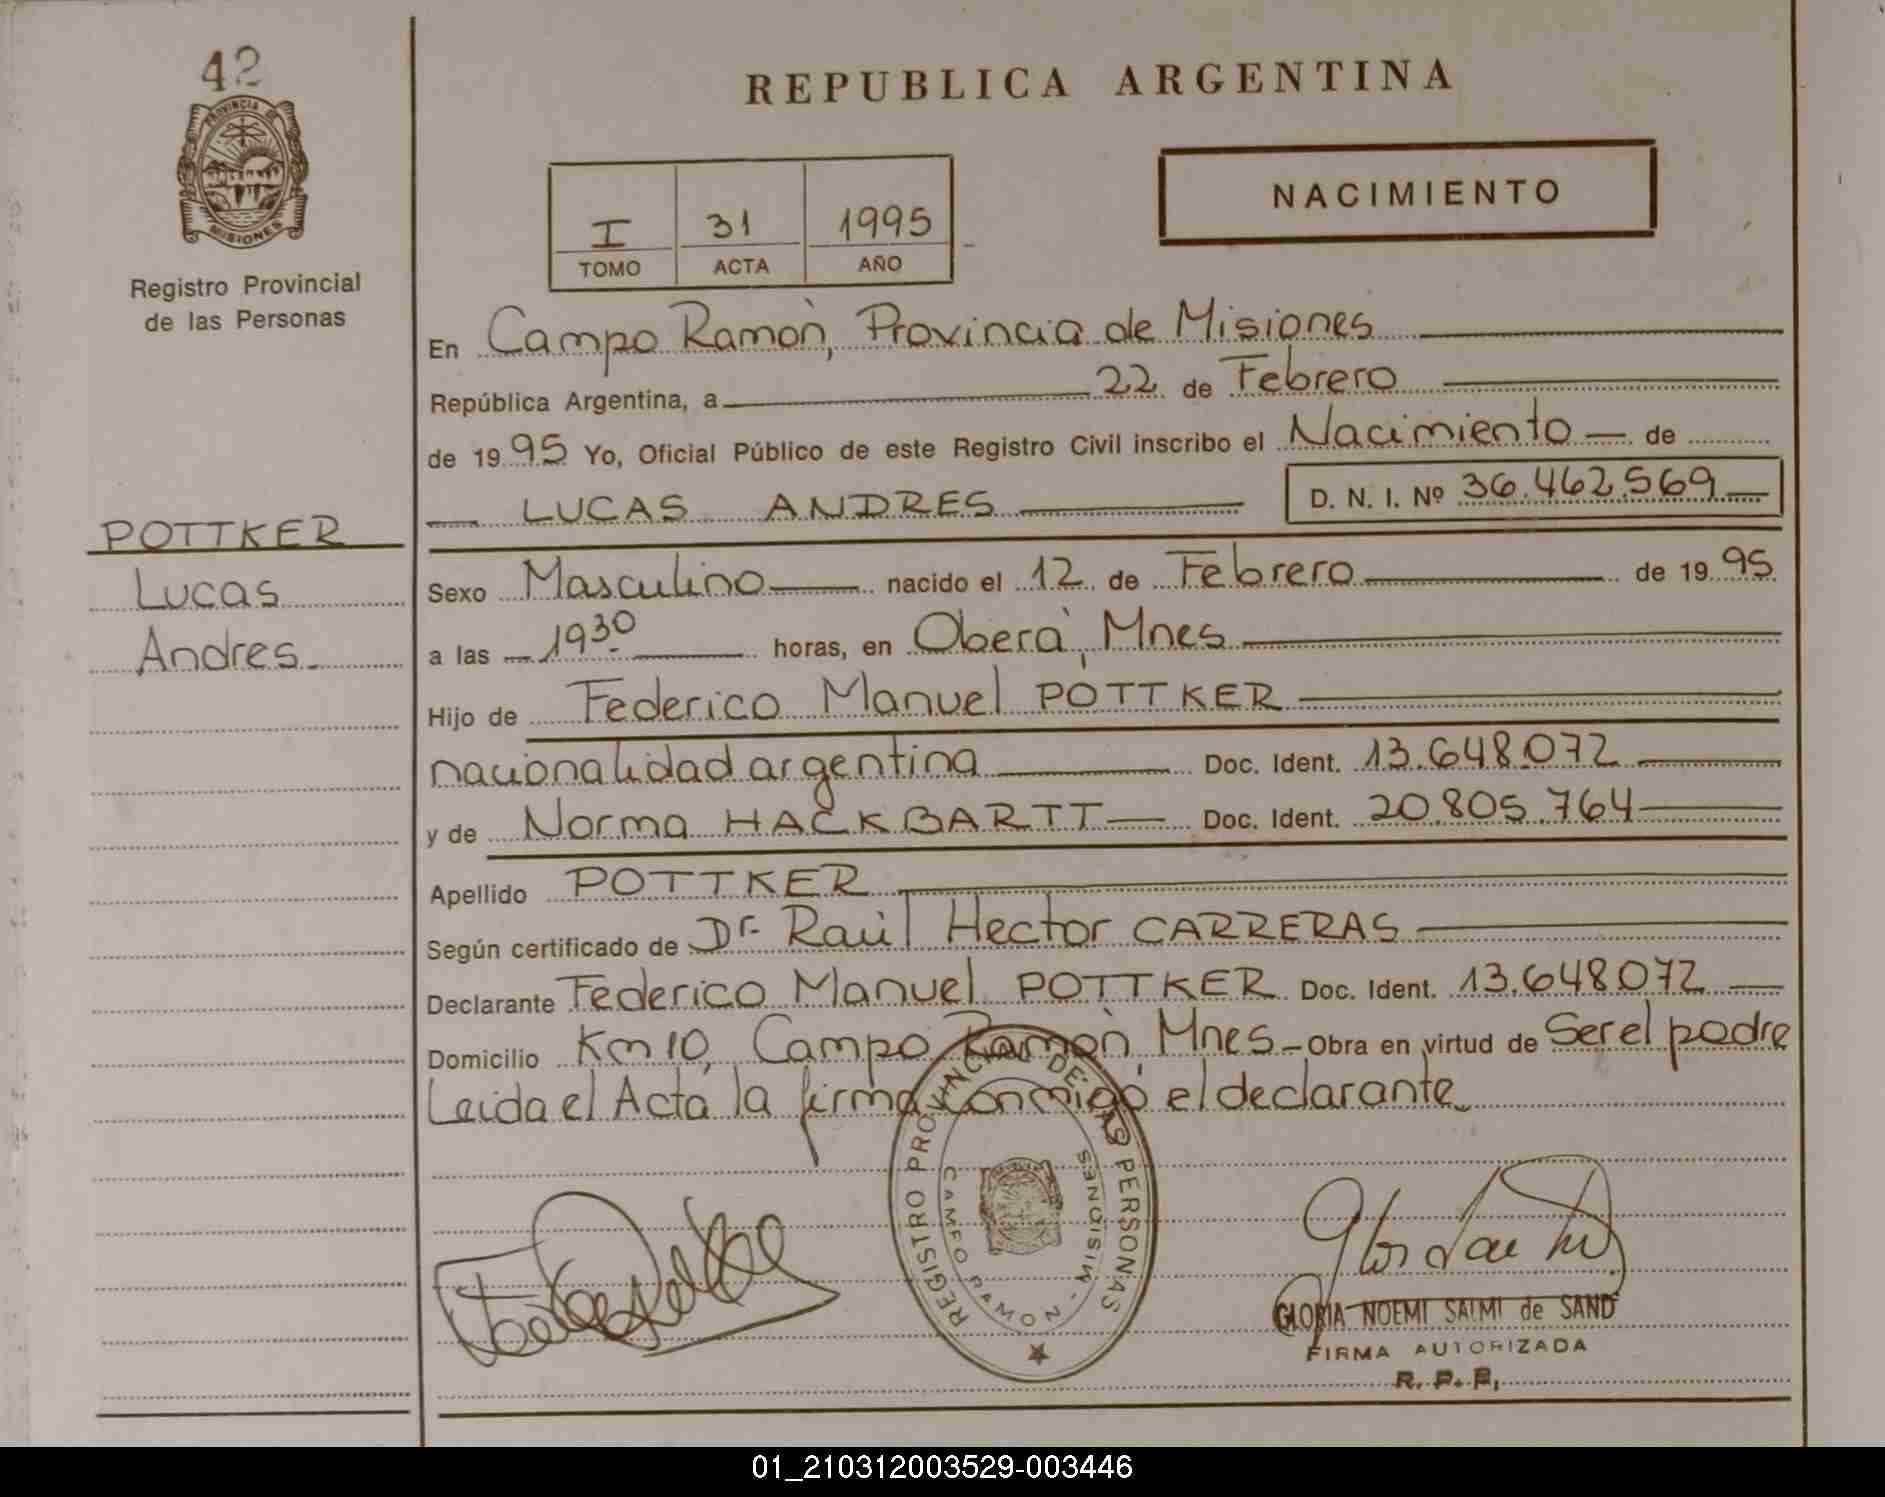 42
PROVINCIA DE
MISIONES
Registro Provincial
de las Personas
POTTKER
Lucas
Andres.
REPUBLICA ARGENTINA
I 31 1995
TOMO ACTA AÑO
NACIMIENTO
En Campo Ramòn, Provincia de Misiones
República Argentina, a 22 de Febrero
de 1995 Yo, Oficial Público de este Registro Civil inscribo el Nacimiento de
LUCAS ANDRES D. N. I. Nº 36.462.569
Sexo Masculino nacido el 12 de Febrero de 1995
a las 1930 horas, en Oberà, Mnes
Hijo de Federico Manuel POTTKER
nacionalidad argentina Doc. Ident. 13.648.072
y de Norma HACKBARTT Doc. Ident. 20.805.764
Apellido POTTKER
Según certificado de Dr. Raúl Hector CARRERAS
Declarante Federico Manuel POTTKER Doc. Ident. 13.648.072
Domicilio Km 10, Campo Ramòn Mnes - Obra en virtud de Ser el padre
Leida el Acta la firma conmigo el declarante
REGISTRO PROVINCIAL DE LAS PERSONAS
CAMPO RAMON - MISIONES
GLORIA NOEMI SALMI de SAND
FIRMA AUTORIZADA
R. P. P.
01_210312003529-003446